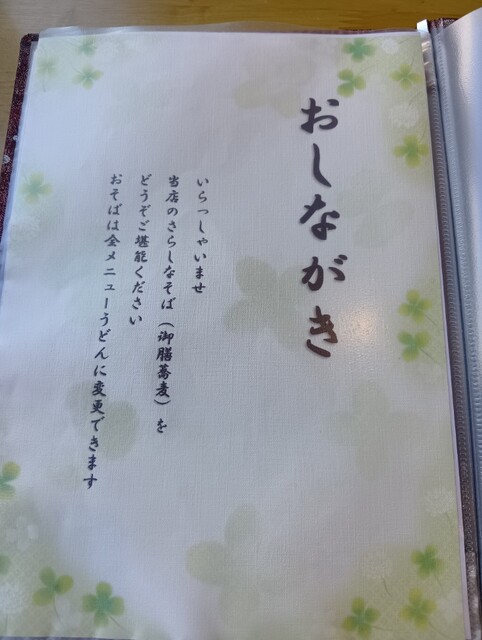 おしながき
いらっしゃいませ
当店のさらしなそば（御膳蕎麦）を
どうぞご堪能ください
おそばは全メニューうどんに変更できます